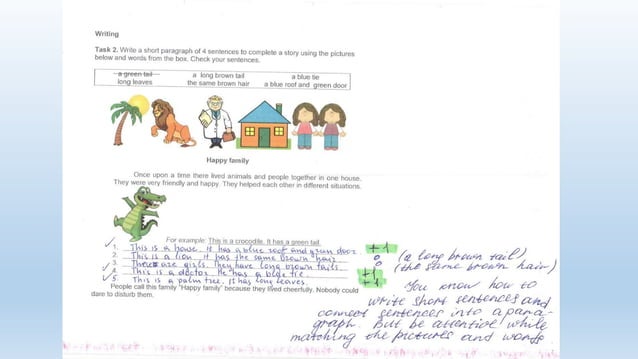 Writing
Task 2. Write a short paragraph of 4 sentences to complete a story using the pictures
below and words from the box. Check your sentences.
a green tail a long brown tail a blue tie
long leaves the same brown hair a blue roof and green door
Happy family
Once upon a time there lived animals and people together in one house.
They were very friendly and happy. They helped each other in different situations.
For example: This is a crocodile. It has a green tail.
1. This is a house. It has a blue roof and green door. +1
2. This is a lion. It has the same brown hair. 0 (a long brown tail)
3. These are girls. They have long brown tails. 0 (the same brown hair)
4. This is a doctor. He has a blue tie. +1
5. This is a palm tree. It has long leaves. +1
People call this family "Happy family' because they lived cheerfully. Nobody could
dare to disturb them.
You know how to
write short sentences and
connect sentences into a para-
graph. But be attentive while
matching the pictures and words